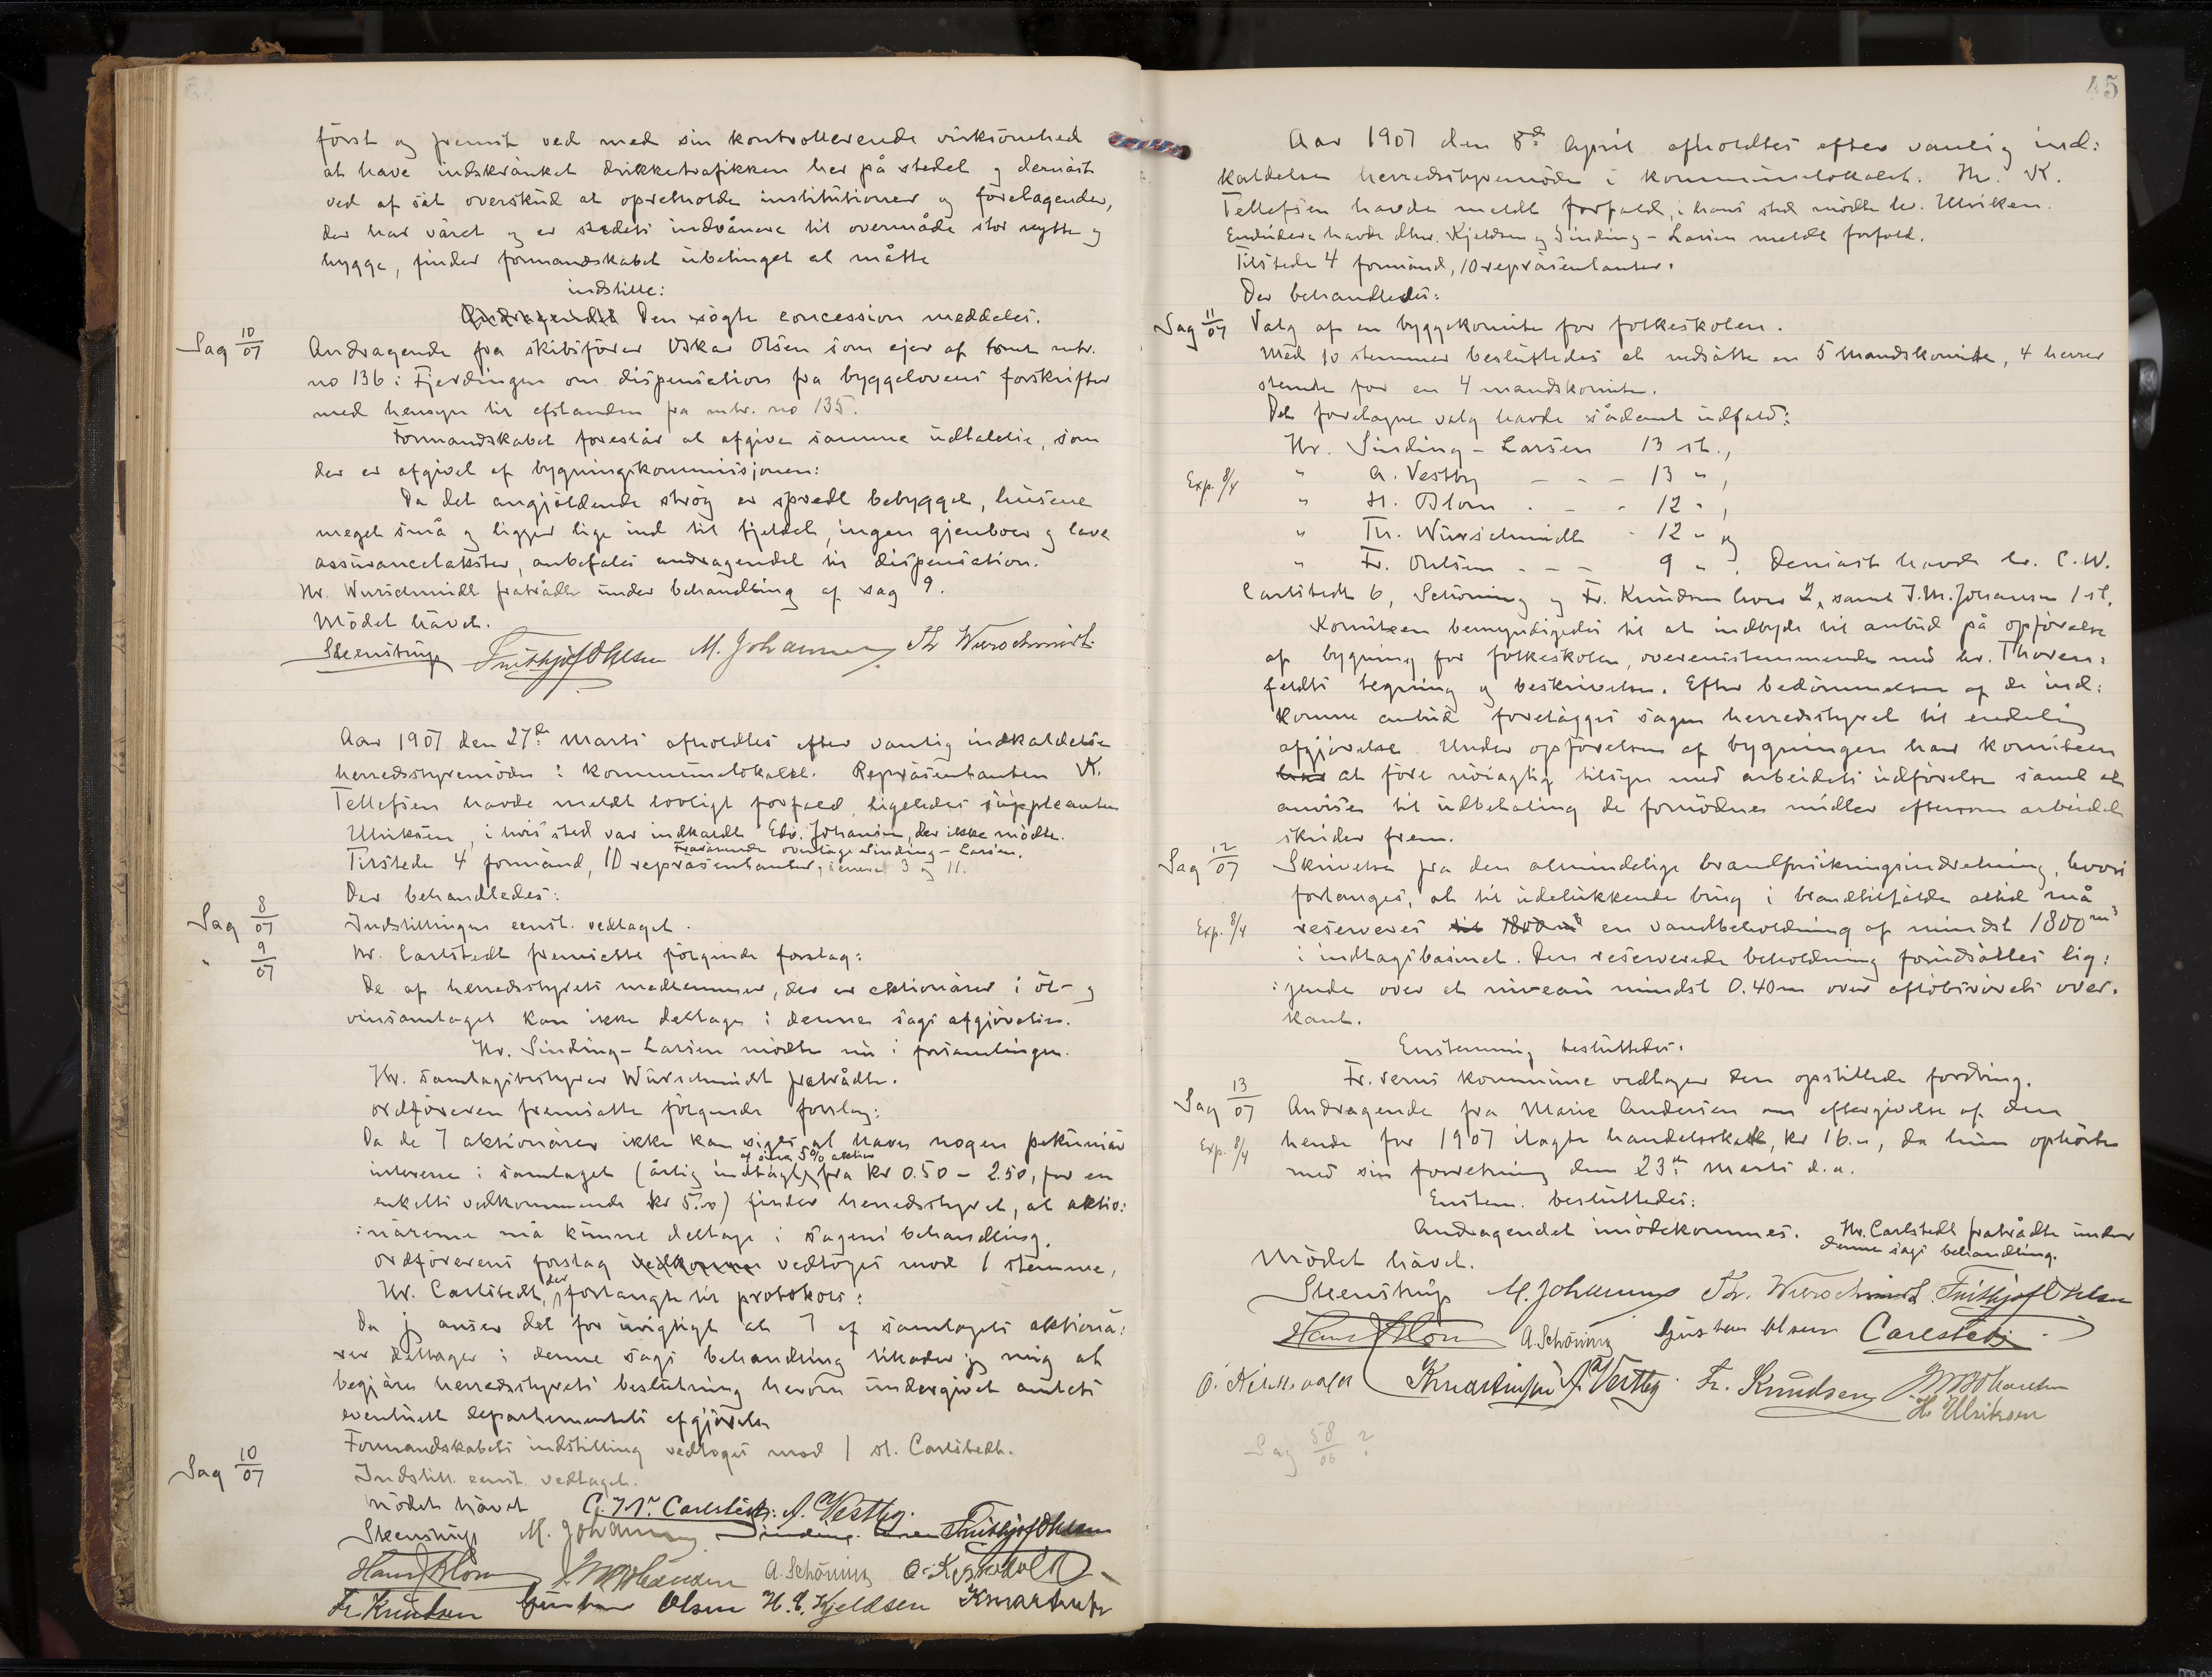 först og fremst ved med sin kontrollerende virksomhed
at have indskränket drikketrafikken her på stedet og dernäst
ved af sit overskud at opretholde institutioner og foretagender,
der har väret og er stedets indvånere til overmåde stor nytte og
hygge, finder formandskabet ubetinget at måtte
indstille:
Den søgte concession meddeles.
Sag 10/07 Andragende fra skibsförer Oskar Olsen som ejer af tomt mtr.
no 136 i Fjerdingen om dispensation fra byggelovens forskrifter
med hensyn til afstanden fra mtr. no 135.
Formandskabet foreslår at afgive samme udtalelse, som
der er afgivet af bygningskommissjonen:
Da det angjäldende strög er spredt bebygget, husene
meget små og ligger lige ind til fjeldet, ingen gjenboer og lave
assurancetakster, anbefales andragendet til dispensation.
Hr. Wurschmidt fratrådte under behandling af sag 9.
Mödet hävet.
Steenstrup Frithjof Ohlsen M. Johannesen Th Wurschmidt
Aar 1907 den 27de Marts afholdtes efter vanlig indkaldelse
herredsstyremöde i kommunelokalet. Repräsentanten K.
Tellefsen havde meldt lovligt forfald, ligeledes suppleanten
Ulriksen, i hvis sted var indkaldt Edv. Johansen, der ikke mödte.
Fraværende overlæge Sinding-Larsen.
Tilstede 4 formänd, 10 repräsentanter, senere 3 og 11.
Der behandledes:
Sag 8/07 Indstillingen eenst. vedtaget.
" 9/07 Hr. Carlstedt fremsatte fölgende forslag:
De af herredsstyrets medlemmer, der er aktionärer i öl- og
vinsamlaget kan ikke deltage i denne sags afgjörelse.
Hr. Sinding-Larsen mödte nu i forsamlingen.
Hr. samlagsbestyrer Wurschmidt fratrådte.
Ordföreren fremsatte fölgende forslag:
Da de 7 aktionärer ikke kan siges at have nogen pekuniär
af sine 5% aktier
interesse i samlaget (årlig indtägt fra kr 0.50 - 2.50, for en
enkelts vedkommende kr 5.00) finder herredsstyret, at aktio:
:närerne må kunne deltage i sagens behandling.
Ordförerens forslag vedtoges mod 1 stemme,
Hr. Carlstedt, der forlangte til protokols:
Da jeg anser det for urigtigt at 7 af samlagets aktionä:
rer deltager i denne sags behandling tillader jeg mig at
begjäre herredsstyrets beslutning herom undergivet amtets
eventuelt departementets afgjörelse
Formandskabets indstilling vedtoges mod 1 st. Carlstedt.
Sag 10/07 Indstill. eenst. vedtaget.
Mödet hävet C. W. Carlstedt. A. Vestby.
Steenstrup M. Johannesen Sinding-Larsen Frithjof Ohlsen
Hans Blom J. M. Johansen A. Schöning O. Kirkevold
Fr. Knudsen Gustav Olsen H. E. Kjeldsen
45
Aar 1907 den 8de April afholdtes efter vanlig ind:
kaldelse herredsstyremöde i kommunelokalet. Hr. K.
Tellefsen havde meldt forfald, i hans sted mödte hr. Ulriksen.
Endvidere havde dhrr. Kjeldsen og Sinding-Larsen meldt forfald.
Tilstede 4 formänd, 10 repräsentanter.
Der behandledes:
Sag 11/07 Valg af en byggekomite for folkeskolen.
Med 10 stemmer besluttedes at nedsätte en 5 mandskomite, 4 herrer
stemte for en 4 mandskomite.
Det foretagne valg havde sådant udfald:
Hr. Sinding-Larsen 13 st.,
Exp. 8/4 " A. Vestby - - - 13 ",
" H. Blom - - - 12 ",
" Th. Wurschmidt - 12 " og
" Fr. Ohlsen - - - 9 ". Dernäst havde hr. C. W.
Carlstedt 6, Schöning og Fr. Knudsen hver 2, samt J.M. Johansen 1 st.
Komiteen bemyndigedes til at indbyde til anbud på opförelse
af bygning for folkeskolen, overenstemmende med hr. Thoren:
feldts tegning og beskrivelse. Efter bedömmelsen af de ind:
komne anbud forelägges sagen herredsstyret til endelig
afgjörelse. Under opförelsen af bygningen har komiteen
at före nöiagtig tilsyn med arbeidets udförelse samt at
anvise til udbetaling de fornödne midler eftersom arbeidet
skrider frem.
Sag 12/07 Skrivelse fra den almindelige brandforsikringsindretning, hvori
forlanges, at til udelukkende brug i brandtilfälde altid må
Exp. 8/4 reserveres til 1800 m3 en vandbeholdning af mindst 1800 m3
i indtagsbasinet. Den reserverede beholdning forudsättes lig:
:gende over et niveau mindst 0.40m over aflöbsrörets over:
kant.
Enstemmig besluttedes:
Fr. verns kommune vedtager den opstillede fordring.
Sag 13/07 Andragende fra Marie Andersen om eftergivelse af den
Exp. 8/4 hende for 1907 ilagte handelsskatt, kr 16.00, da hun ophörte
med sin forretning den 23de Marts d.a.
Enstem. besluttedes:
Andragendet imödekommes. Hr. Carlstedt fratrådte under
denne sags behandling.
Mödet hävet.
Steenstrup M. Johannesen Th. Wurschmidt Frithjof Ohlsen
Hans Blom A. Schöning Gustav Olsen Carlstedt
O. Kirkevold A. Vestby Fr. Knudsen J M Johansen
H. Ulriksen
Sag 58/06 ?